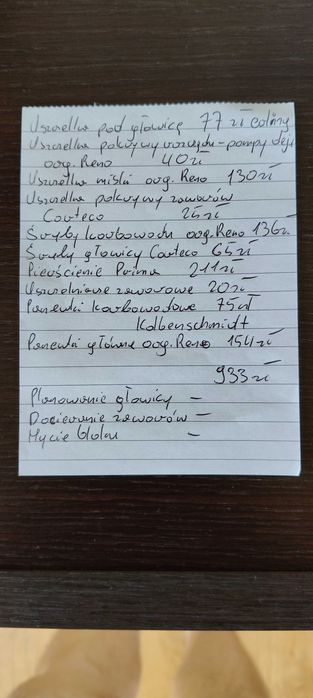 Uszczelka pod głowicę 77 zł
Uszczelka pokrywy rozrządu - pompy oleju
oryg. Reno 40 zł
Uszczelka miski oryg. Reno 130 zł
Uszczelka pokrywy zaworów
Corteco 25 zł
Śruby korbowodu oryg. Reno 136 zł
Śruby głowicy Corteco 65 zł
Pierścienie Prima 211 zł
Uszczelniacze zaworowe 20 zł
Panewki korbowodowe 75 zł
Kolbenschmidt
Panewki główne oryg. Reno 154 zł
933 zł
Planowanie głowicy —
Docieranie zaworów —
Mycie bloku —